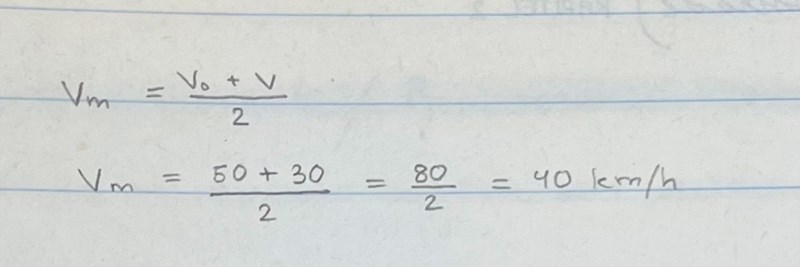 Vm = V₀ + V / 2
Vm = 50 + 30 / 2 = 80 / 2 = 40 km/h